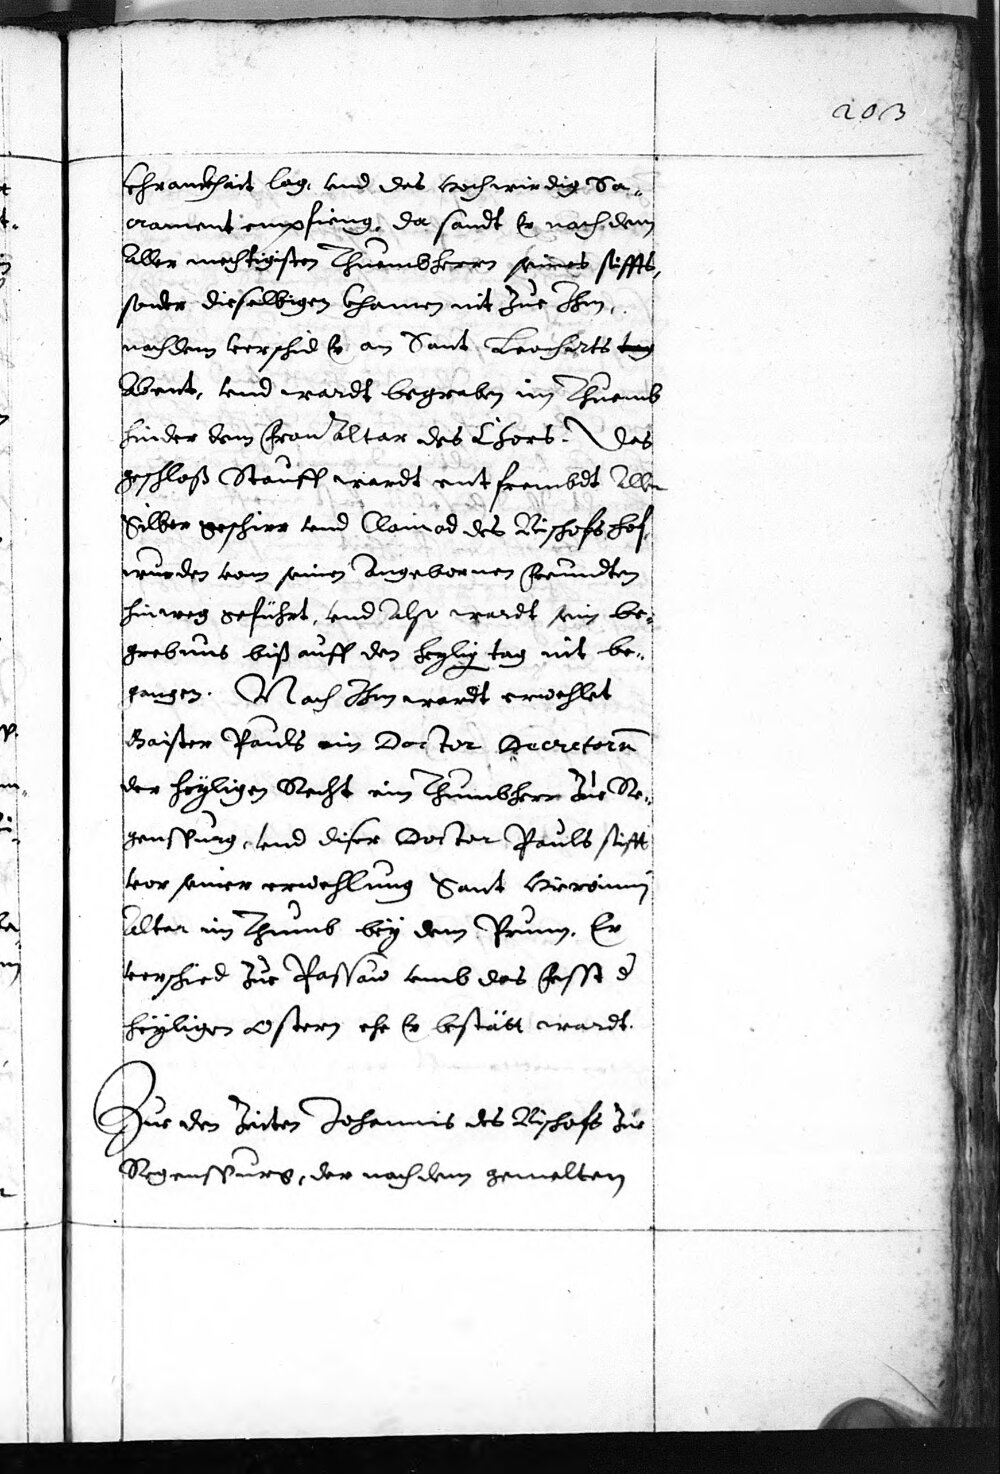 203
Chranckhait lag, und das hochwirdig Sa-
crament empfieng, da sandt Er nach dem
Aller mechtigisten Thuembherrn seines stiffts,
sonder dieselbigen khamen nit Zue Ihm,
nachdem verschid Er an Sant Leonharts tag
Abent, und wardt begraben im Thuemb
hinder dem Fron Altar des Chors. Das
geschloß Stauff wardt entfrembdt Alles
Silber geschirr und Clainod des Bischofs hof,
wurden von seinen Angebornen freundten
hinweg geführt, und also wardt sein be-
grebnus biß auff den heylig tag nit be-
gangen. Nach Ihm wardt erwehlet
Maister Pauls ein Doctor Decretorũ
der heyligen Recht ein Thumbherr Zue Re-
genspurg, und diser Doctor Pauls stifft
vor seiner erwehlung Sant Hieronimj
Altar im Thumb bey dem Prunn. Er
verschied Zue Passaw umb das Fesst d
heyligen Ostern ehe Er bestätt wardt.
Zue den Zeiten Johannis des Bischofs Zue
Regenspurg, der nach dem gemelten